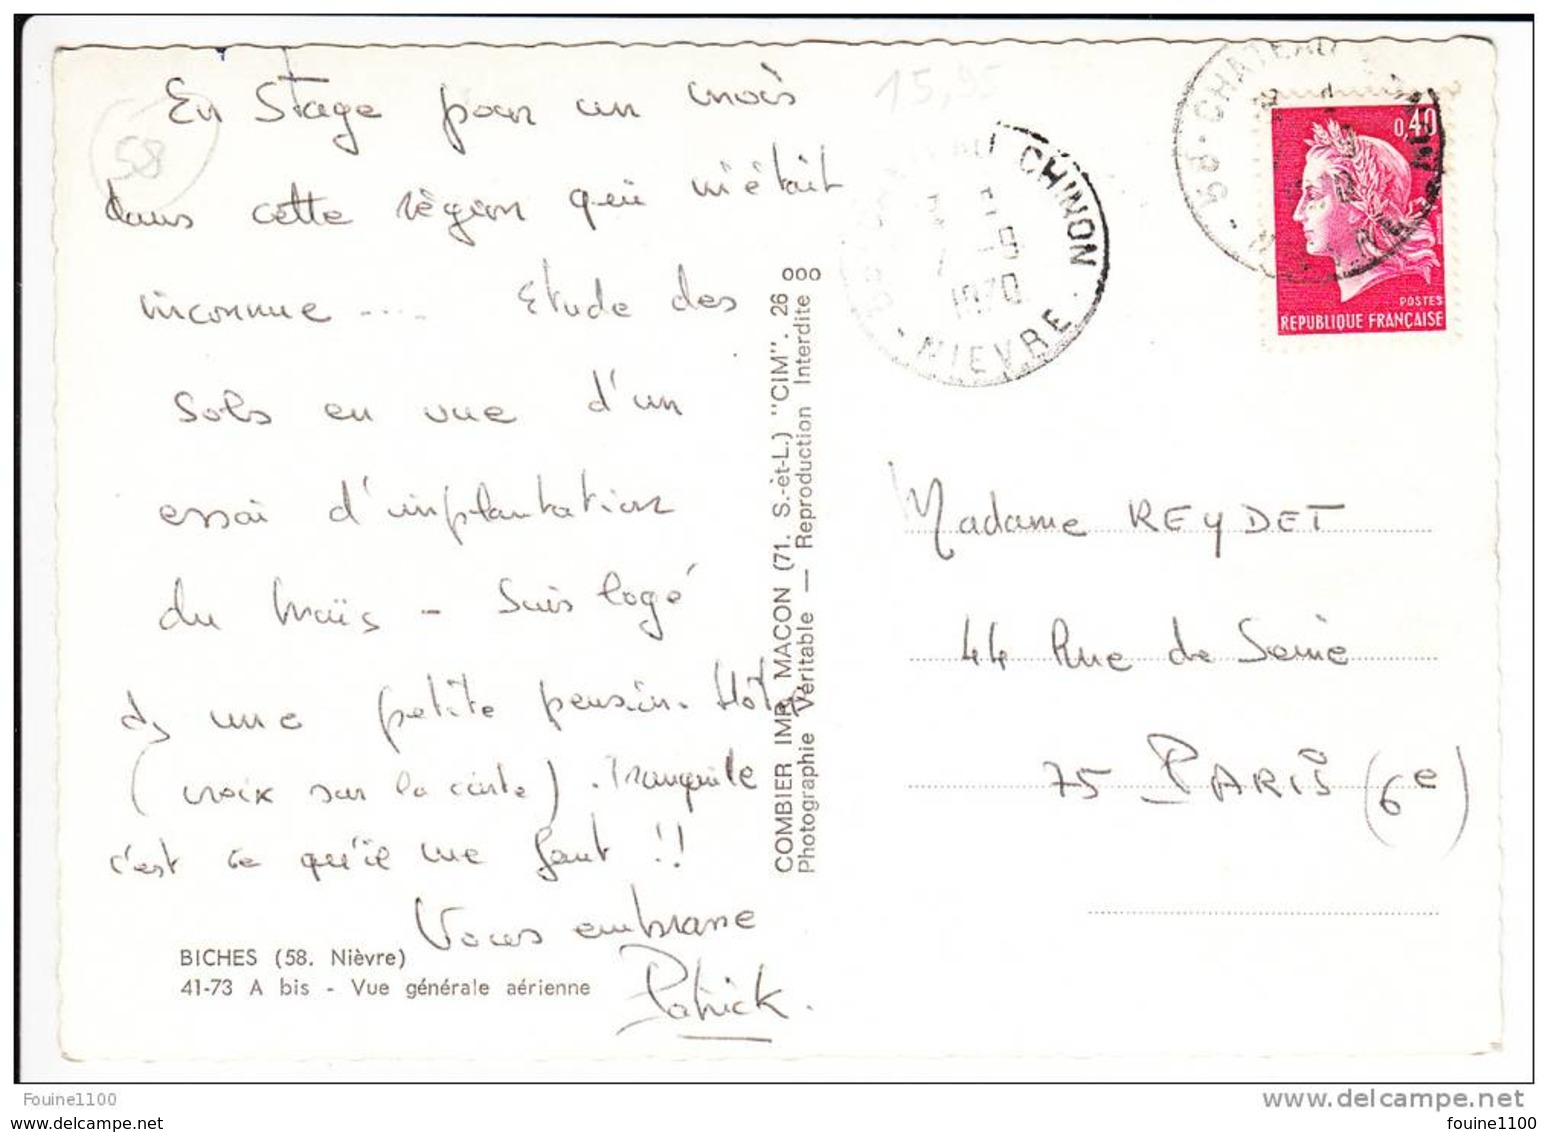 En Stage pour un mois
dans cette région qui m'était
inconnue .... Etude des
sols en vue d'un
essai d'implantation
du maïs - Suis logé
ds une petite pension. Hôtel
(croix sur la carte). Tranquille
c'est ce qu'il me faut !!
Vous embrasse
Patrick.
BICHES (58. Nièvre)
41-73 A bis - Vue générale aérienne
58
15,95
COMBIER IMP. MACON (71. S.-èt-L.) "CIM". 26 ooo
Photographie Véritable — Reproduction Interdite
CHINON
1970
NIEVRE
58 · CHATEAU
0,40
POSTES
REPUBLIQUE FRANÇAISE
Madame REYDET
44 Rue de Seine
75 PARIS (6e)
Fouine1100
www.delcampe.net
www.delcampe.net
fouine1100